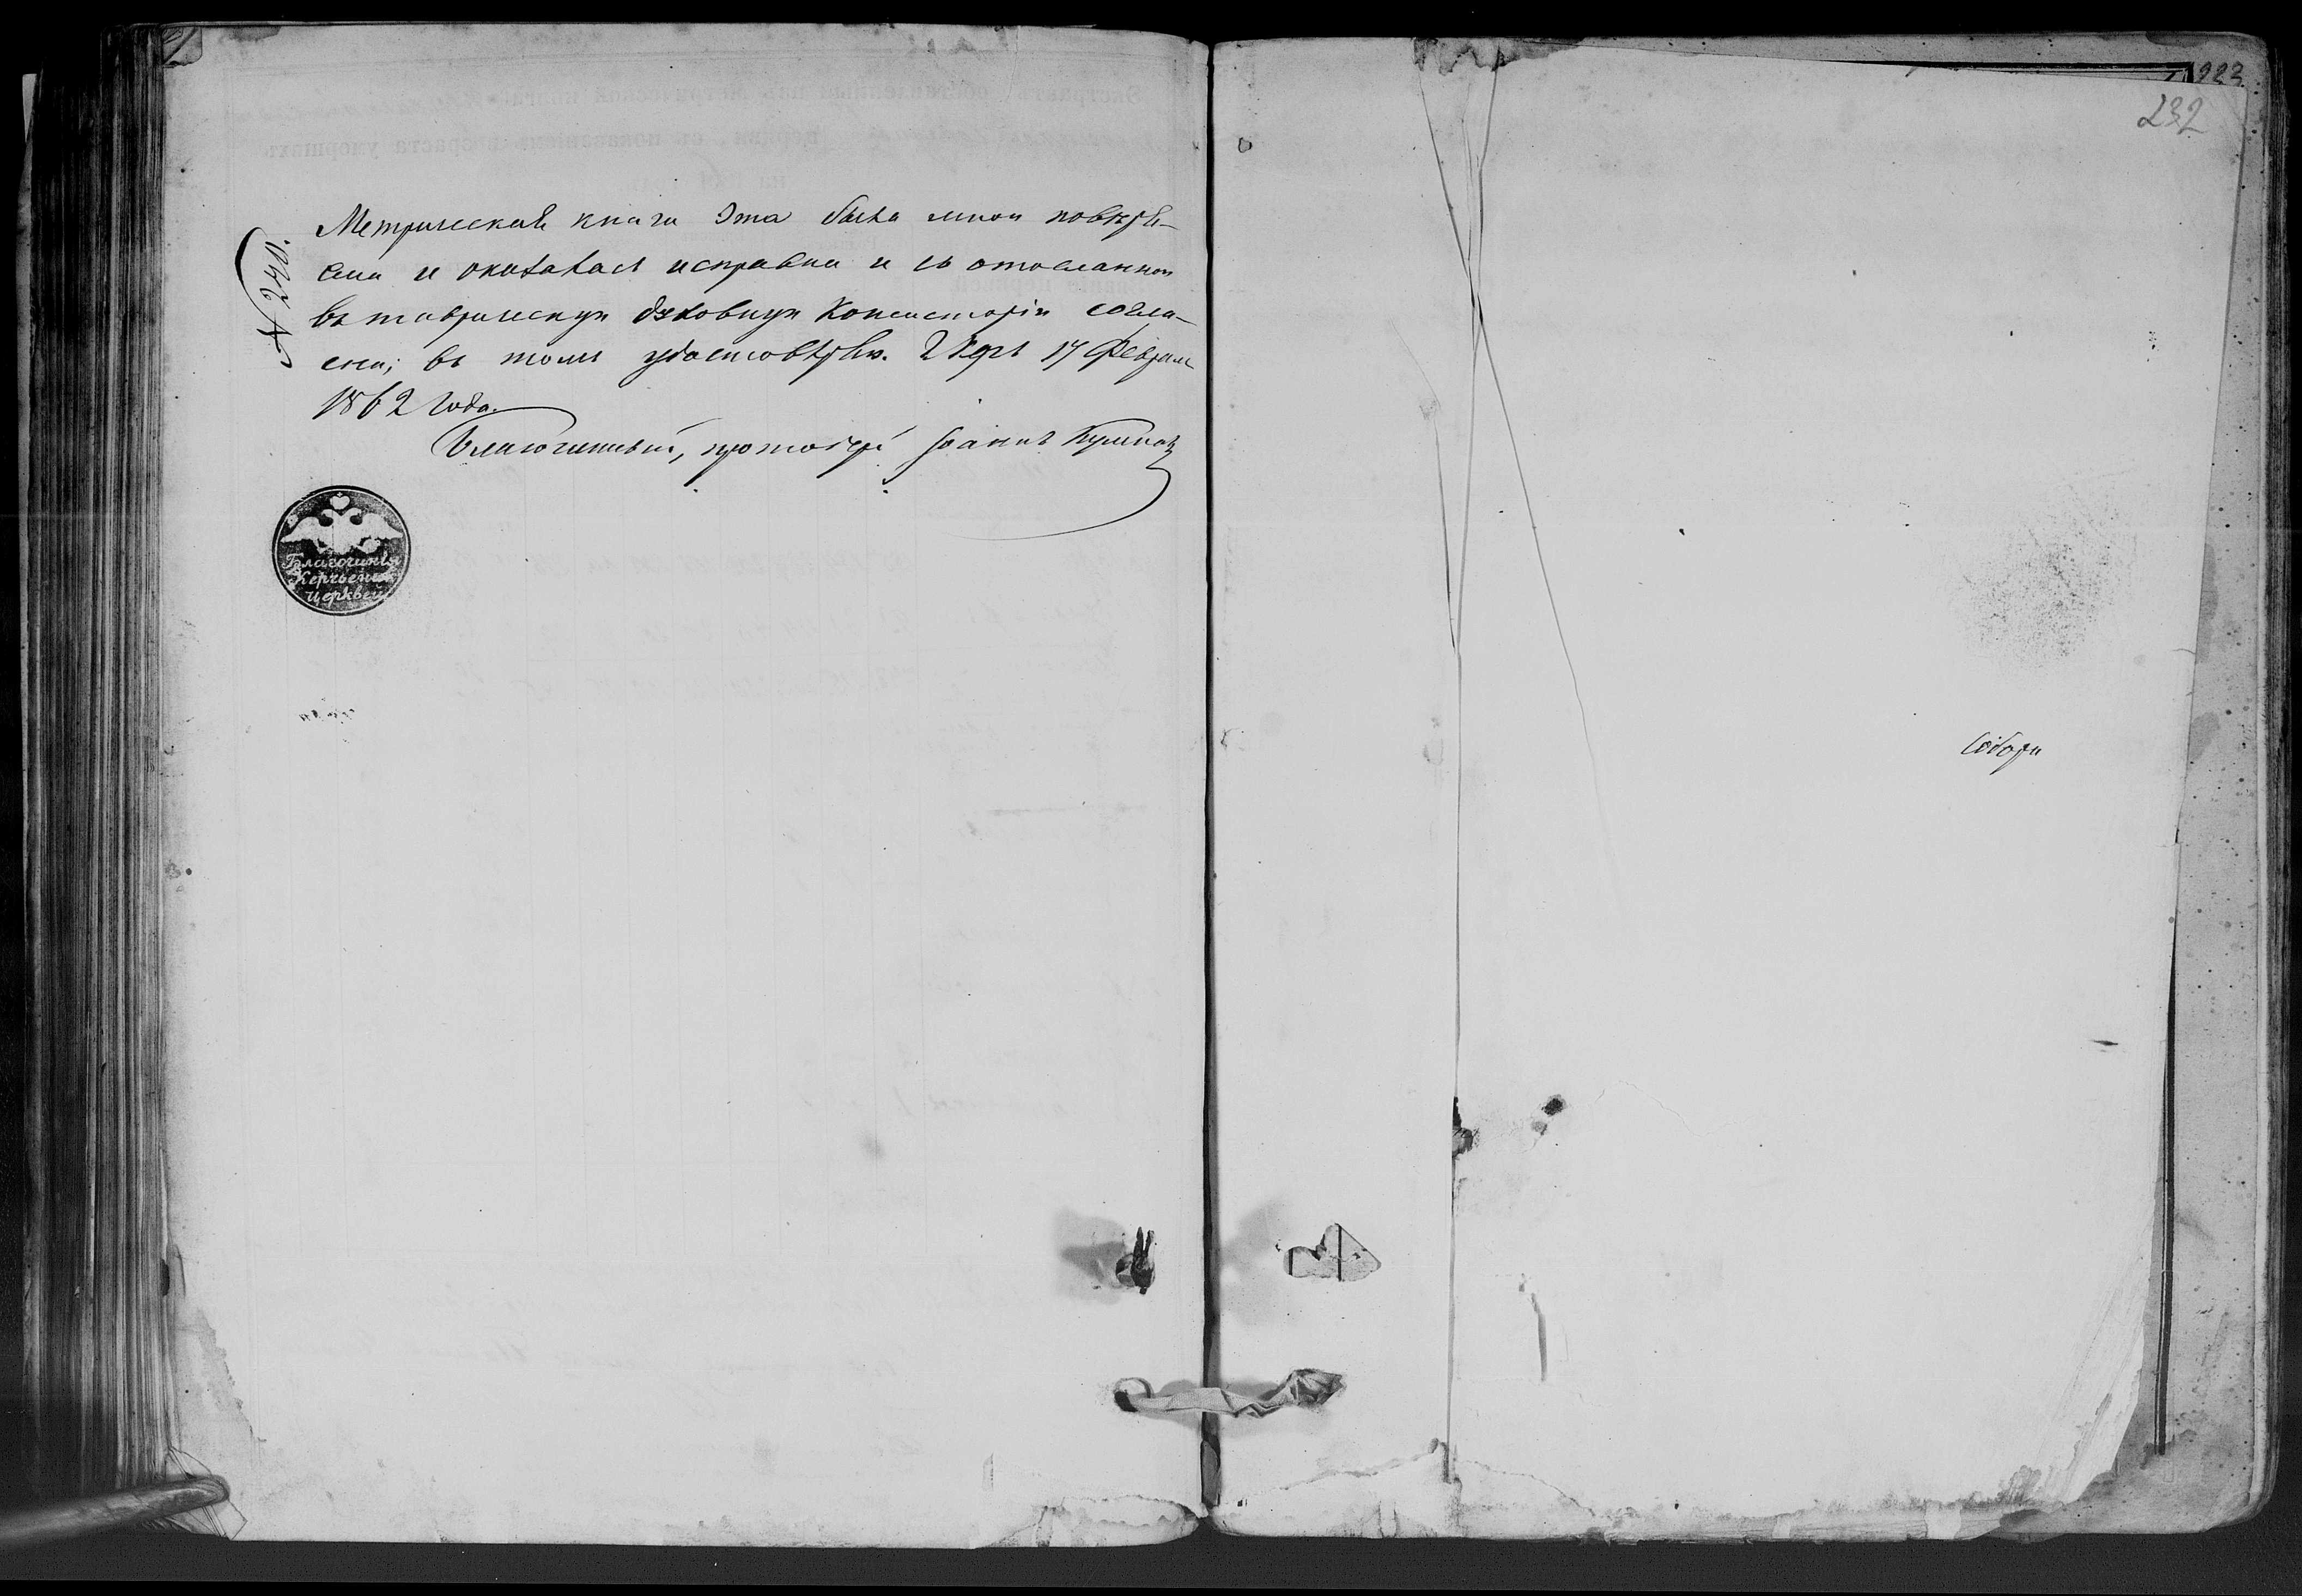 № 240.
Метрическая книга эта была мною повѣря-
ема и оказалась исправна и съ отосланною
въ таврическую духовную Консисторію согла-
сна; въ томъ удостовѣряю. 17 Февраля
1862 года.
Благочинный, протоіерей Іоаннъ
Благочинія
Керченск
Церквей
232